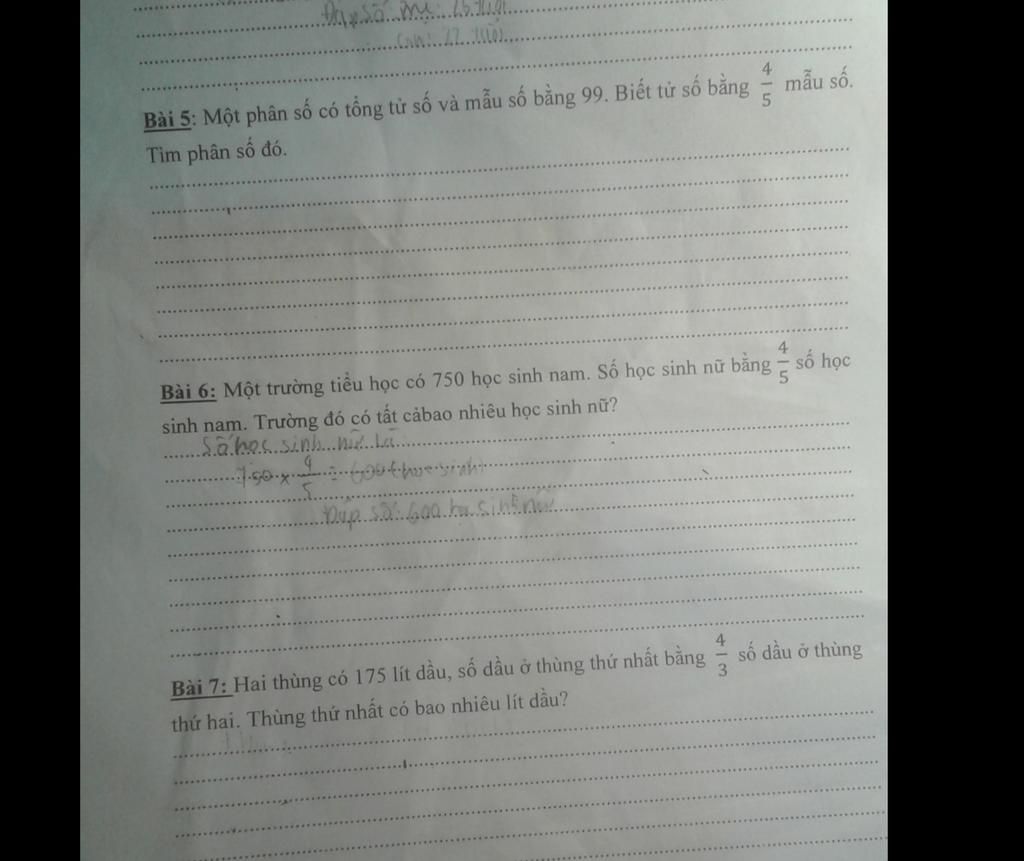 Đáp số: Mẹ:
Bài 5: Một phân số có tổng tử số và mẫu số bằng 99. Biết tử số bằng 4/5 mẫu số.
Tìm phân số đó.
Bài 6: Một trường tiểu học có 750 học sinh nam. Số học sinh nữ bằng 4/5 số học
sinh nam. Trường đó có tất cảbao nhiêu học sinh nữ?
Số học sinh nữ là:
750 x 4/5 = 600 (học sinh)
Đáp số: 600 học sinh nữ
Bài 7: Hai thùng có 175 lít dầu, số dầu ở thùng thứ nhất bằng 4/3 số dầu ở thùng
thứ hai. Thùng thứ nhất có bao nhiêu lít dầu?